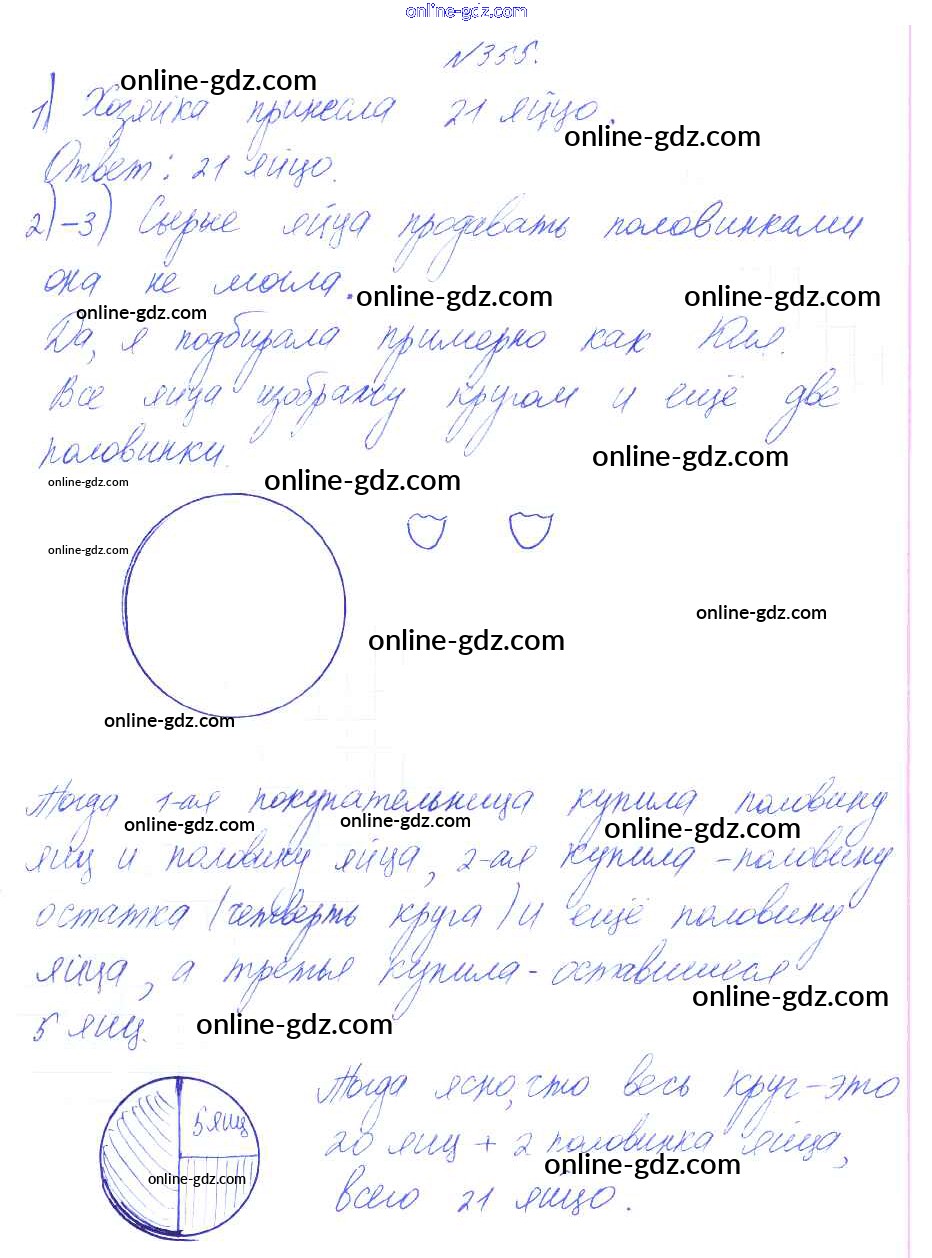 online-gdz.com
№355.
online-gdz.com
1) Хозяйка принесла 21 яйцо.
online-gdz.com
Ответ: 21 яйцо.
2)-3) Сырые яйца продавать половинками
она не могла.
online-gdz.com online-gdz.com
online-gdz.com
Да, я подбирала примерно как Юля.
Все яйца изображу кругом и ещё две
половинки.
online-gdz.com
online-gdz.com
online-gdz.com
online-gdz.com
online-gdz.com
online-gdz.com
online-gdz.com
Тогда 1-ая покупательница купила половину
online-gdz.com online-gdz.com online-gdz.com
яиц и половину яйца, 2-ая купила - половину
остатка (четверть круга) и ещё половину
яйца, а третья купила - оставшиеся
online-gdz.com
5 яиц.
online-gdz.com
5 яиц
online-gdz.com
Тогда ясно, что весь круг - это
20 яиц + 2 половинка яйца,
online-gdz.com
всего 21 яйцо.